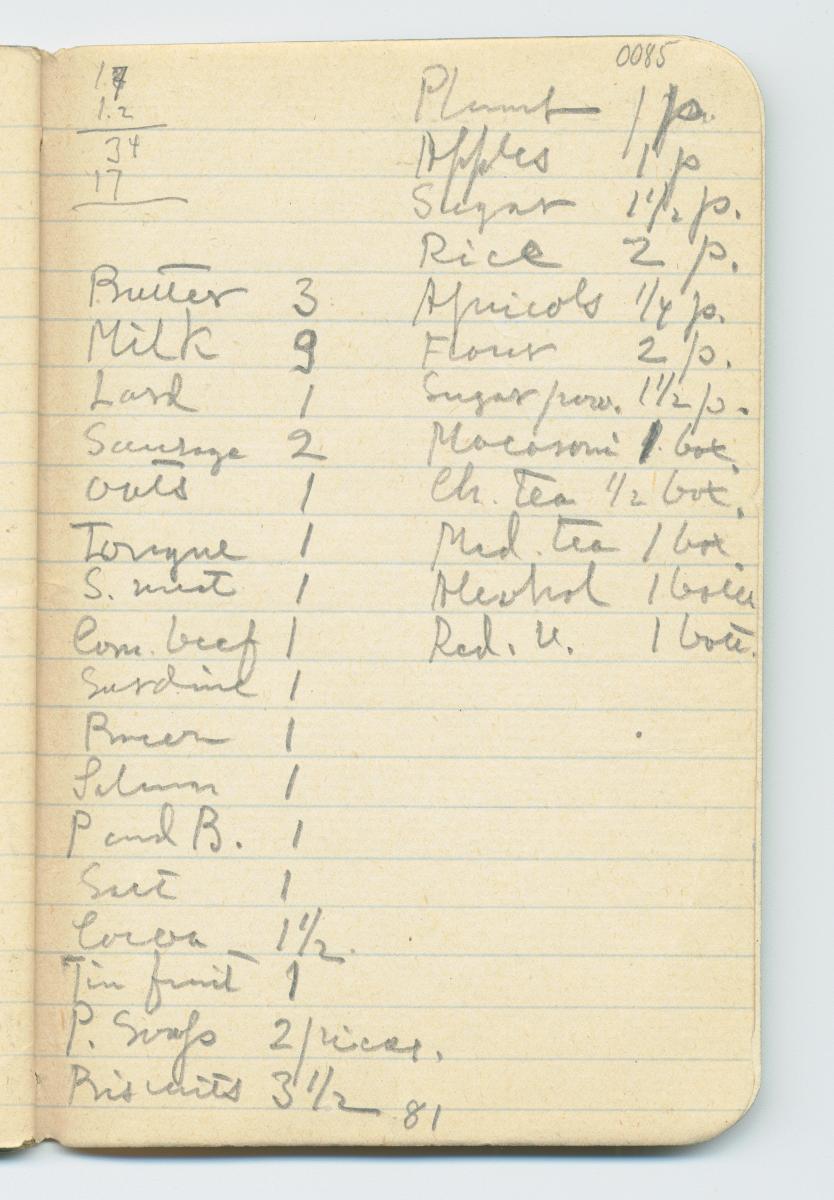 0085
1.7
1.2
34
17
Butter 3
Milk 9
Lard 1
Sausage 2
Oats 1
Tongue 1
S. meat 1
Corn. beef 1
Sardine 1
Bacon 1
Salmon 1
P and B. 1
Salt 1
Cocoa 1 1/2
Tin fruit 1
P. Soap 2 pieces.
Biscuits 3 1/2
81
1 p.
Apples 1 p
Sugar 1 1/2 p.
Rice 2 p.
Apricots 1/4 p.
Flour 2 p.
Sugar pow. 1 1/2 p.
Macaroni 1 box.
Ch. tea 1/2 box.
Med. tea 1 box
Alcohol 1 bottle
Red. 1 bott.